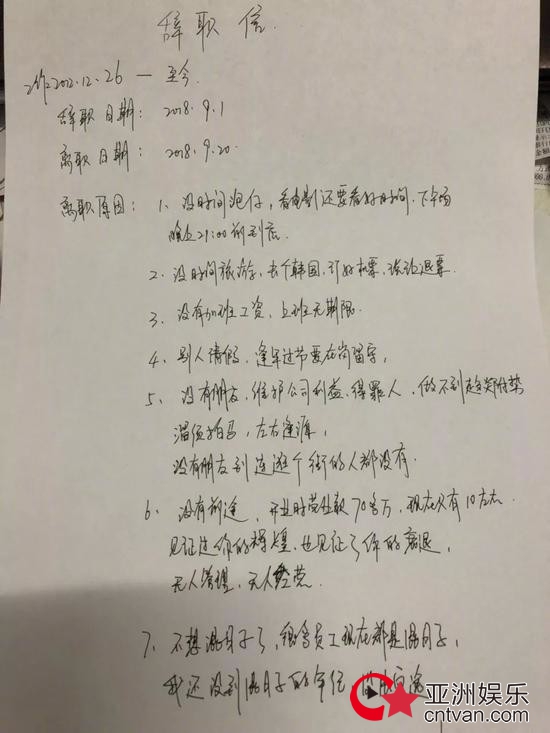 辞职信
工作2012.12.26 — 至今
辞职日期: 2018.9.1
离职日期: 2018.9.20
离职原因: 1、没时间泡仔,看电影还要看好时间.下午场
晚上21:00前到店.
2、没时间旅游,去个韩国,订好机票,强迫退票.
3、没有加班工资,上班无期限.
4、别人请假,逢年过节要在岗留守,
5、没有朋友,维护公司利益,得罪人,做不到趋炎附势
溜须拍马,左右逢源,
没有朋友到连逛个街的人都没有.
6、没有前途,开业时营业款70多万,现在只有10左右.
见证过你的辉煌,也见证了你的衰退,
无人管理,无人经营.
7、不想混日子了,很多员工现在都是混日子,
我还没到混日子的年纪
亚洲娱乐
cntvan.com